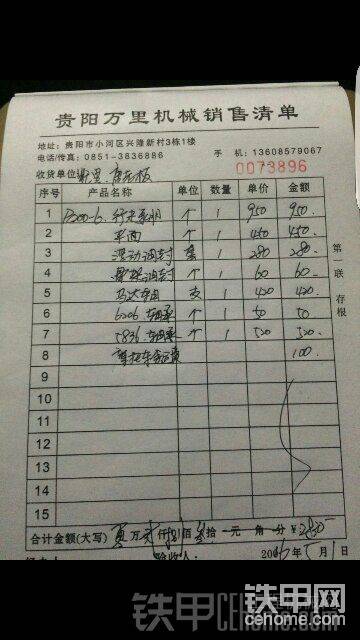 贵阳万里机械销售清单
地址：贵阳市小河区兴隆新村3栋1楼
电话/传真：0851-3836886 手 机：13608579067
收货单位 0073896
序号 产品名称 单位 数量 单价 金额
1 P200-6. 行走 个 1 950 950.
2 平面 个 1 450 450.
3 浮动油封 套 1 280 280.
4 骨架油封 个 1 60 60.
5 马达轴 支 1 420 420.
6 6206 轴承 个 1 50 50
7 5836 轴承 个 1 520 520
8 摩托车 100.
9
10
11
12
13
14
15
第二联 存根
合计金额(大写) 万 仟 佰 拾 元 角 分 ¥
验收人： 年 月 1 日
铁甲网
铁甲 CEhome.com